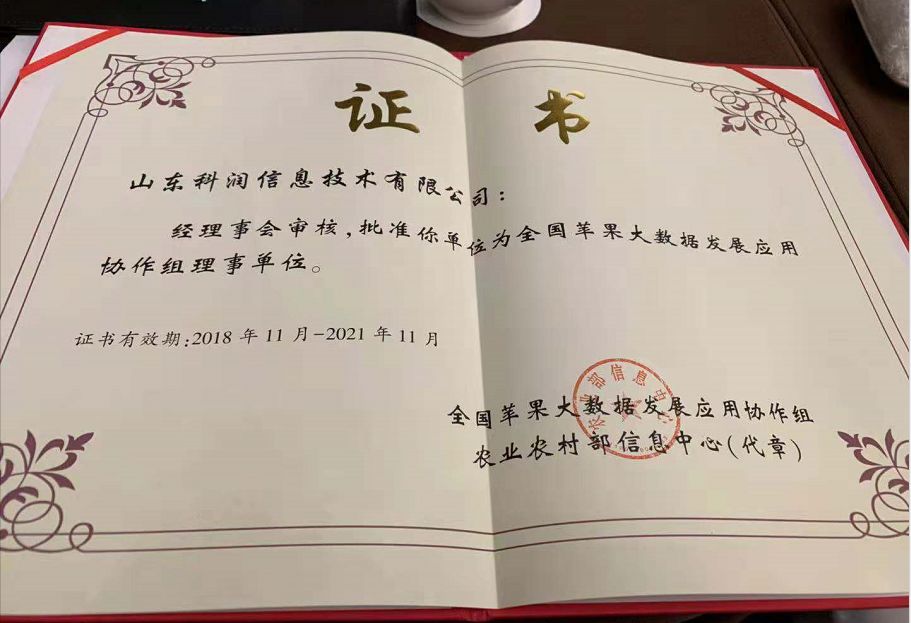 证 书
山东科润信息技术有限公司：
经理事会审核，批准你单位为全国苹果大数据发展应用
协作组理事单位。
证书有效期:2018年11月-2021年11月
全国苹果大数据发展应用协作组
农业农村部信息中心(代章)
农业部信息中心